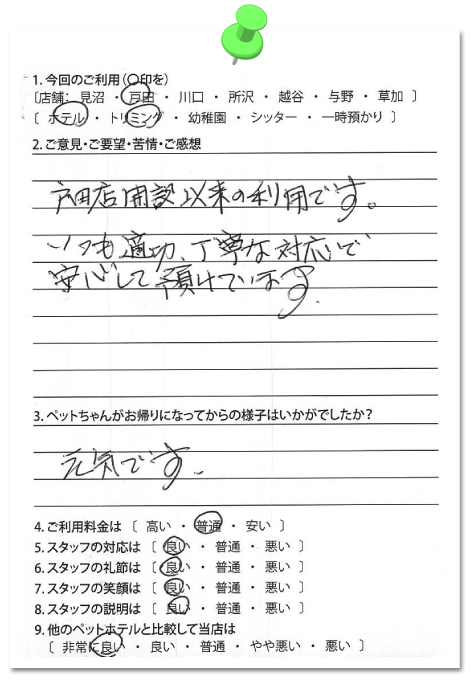 1. 今回のご利用(〇印を)
〔店舗： 見沼 ・ 戸田 ・ 川口 ・ 所沢 ・ 越谷 ・ 与野 ・ 草加 〕
〔 ホテル ・ トリミング ・ 幼稚園 ・ シッター ・ 一時預かり 〕
2. ご意見・ご要望・苦情・ご感想
戸田店開設以来の利用です。
いつも適切、丁寧な対応で
安心して預けています.
3. ペットちゃんがお帰りになってからの様子はいかがでしたか?
元気です.
4. ご利用料金は 〔 高い ・ 普通 ・ 安い 〕
5. スタッフの対応は 〔 良い ・ 普通 ・ 悪い 〕
6. スタッフの礼節は 〔 良い ・ 普通 ・ 悪い 〕
7. スタッフの笑顔は 〔 良い ・ 普通 ・ 悪い 〕
8. スタッフの説明は 〔 良い ・ 普通 ・ 悪い 〕
9. 他のペットホテルと比較して当店は
〔 非常に良い ・ 良い ・ 普通 ・ やや悪い ・ 悪い 〕